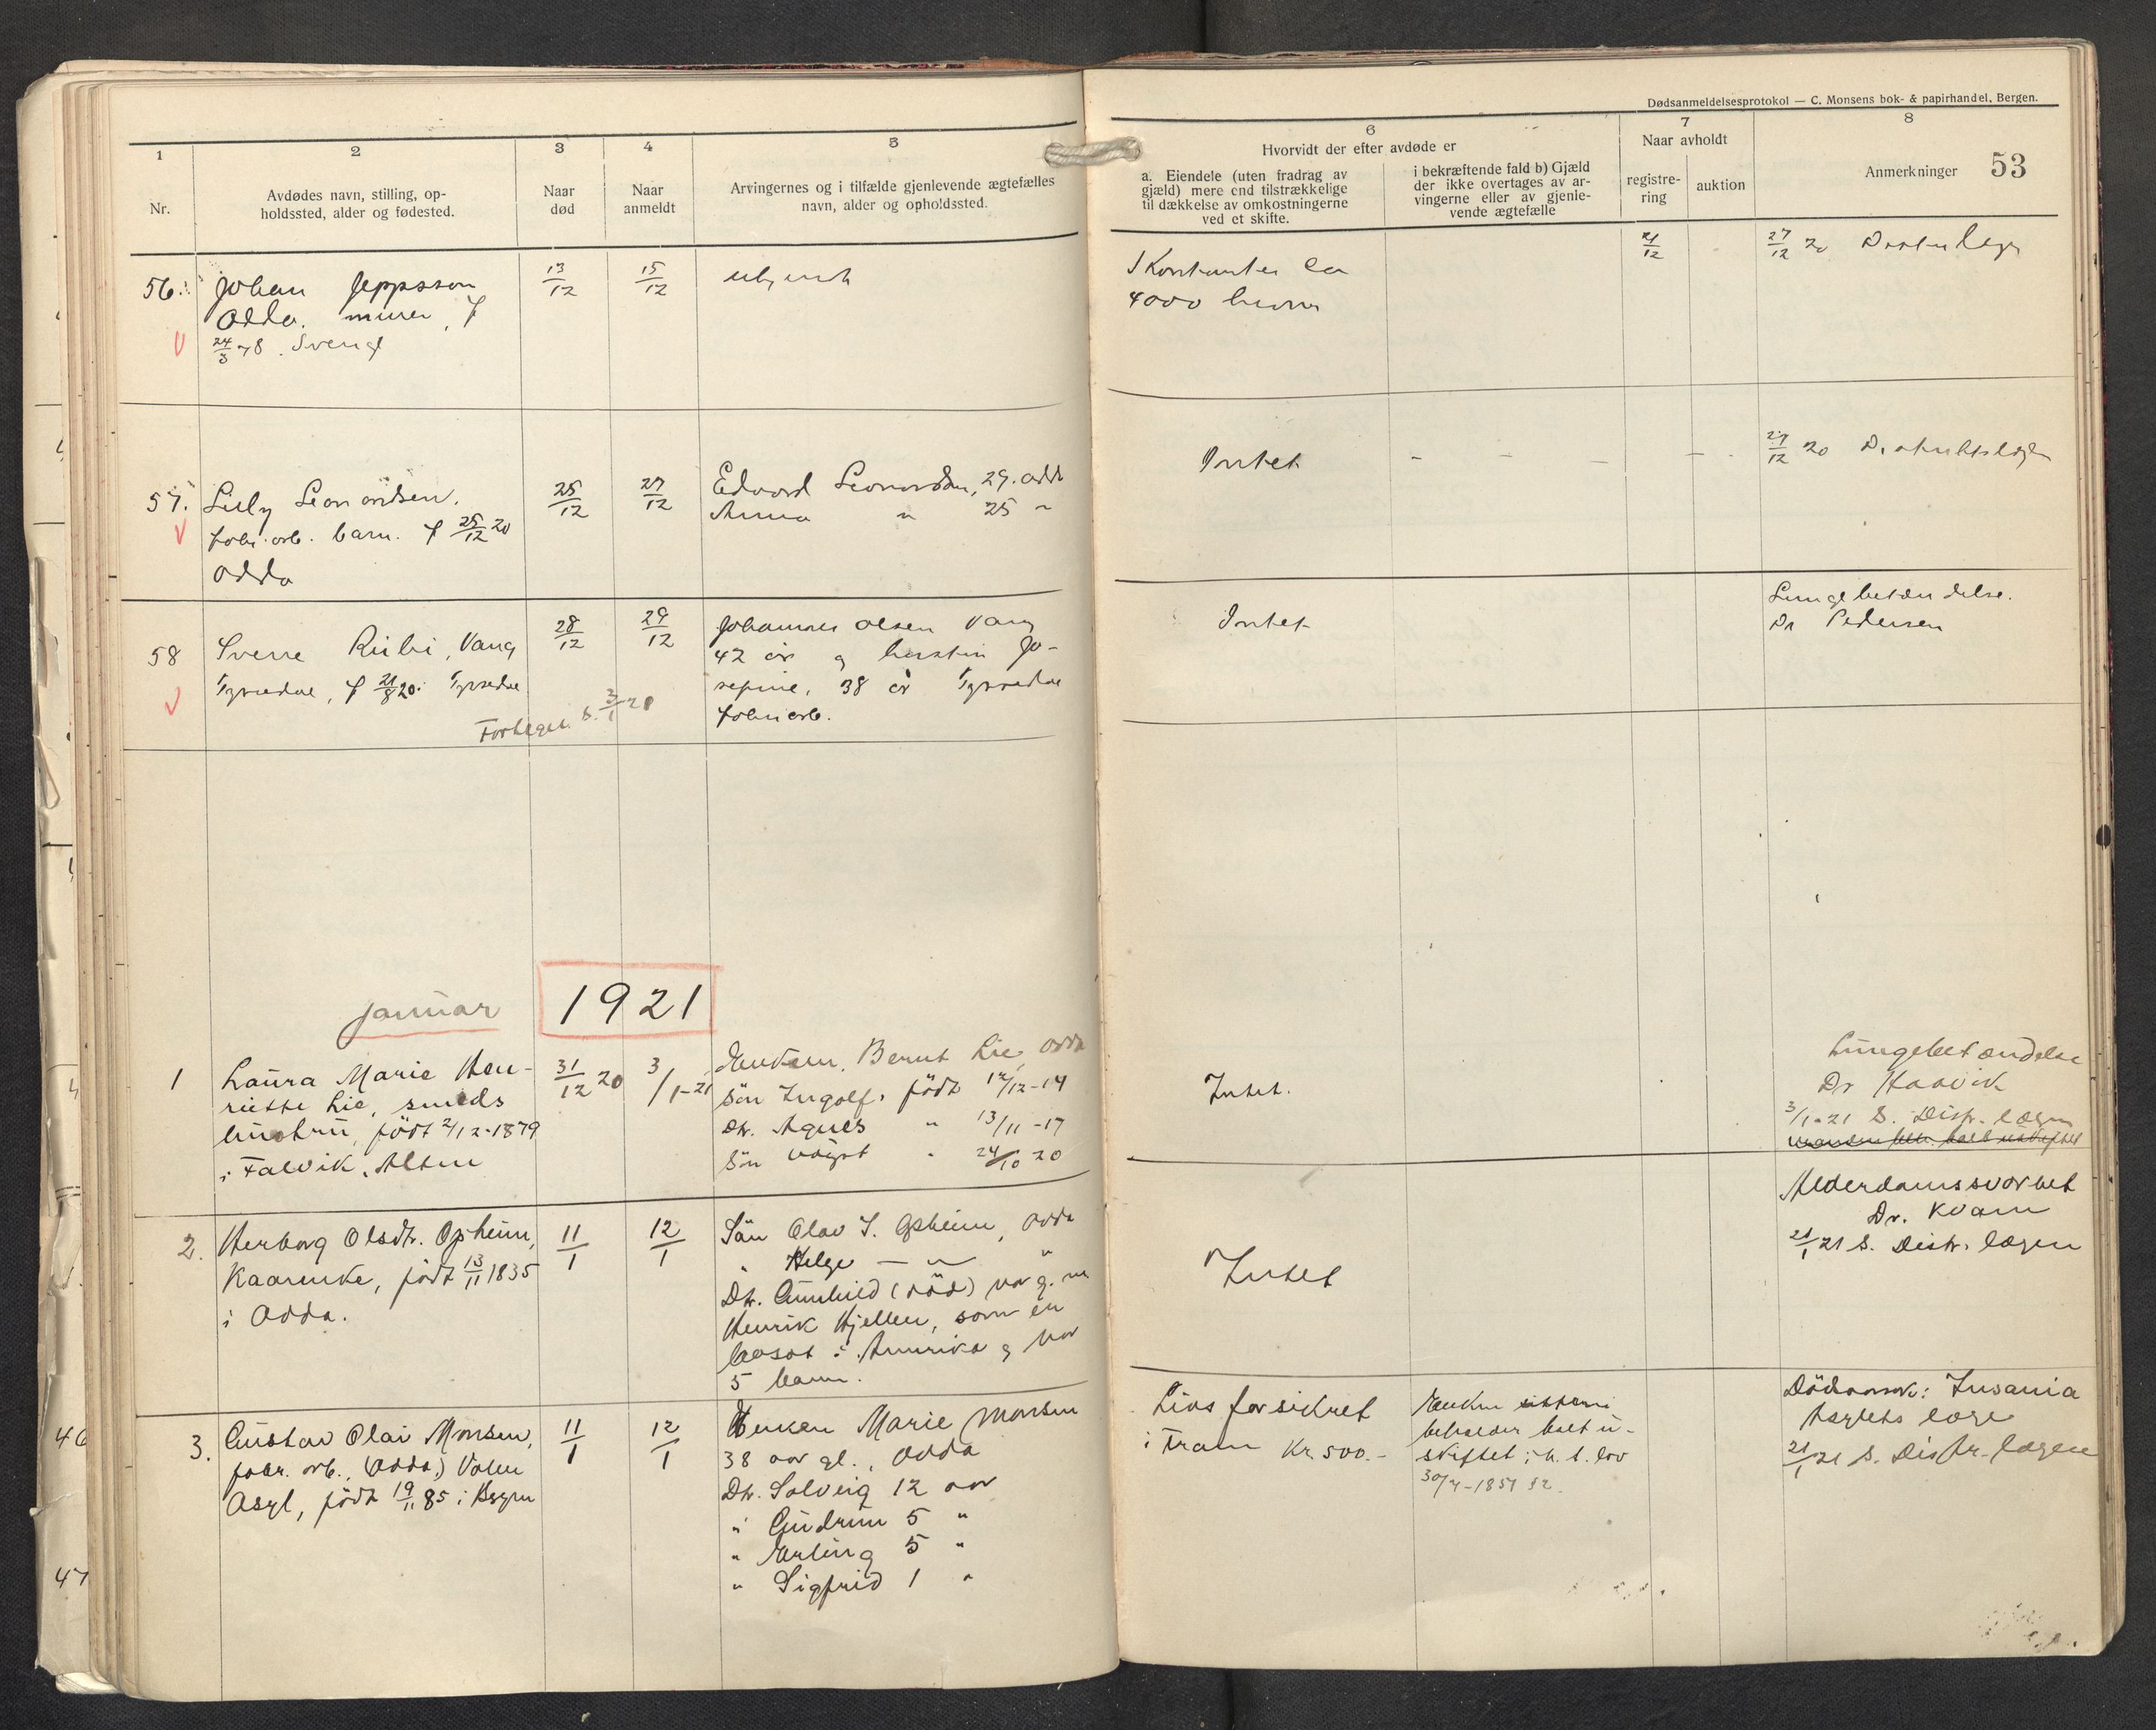 Dødsanmeldelsesprotokol — C. Monsens bok- & papirhandel, Bergen.
53
1
Nr.
2
Avdødes navn, stilling, op-
holdssted, alder og fødested.
3
Naar
død
4
Naar
anmeldt
5
Arvingernes og i tilfælde gjenlevende ægtefælles
navn, alder og opholdssted.
6
Hvorvidt der efter avdøde er
a. Eiendele (uten fradrag av
gjæld) mere end tilstrækkelige
til dækkelse av omkostningerne
ved et skifte.
i bekræftende fald b) Gjæld
der ikke overtages av ar-
vingerne eller av gjenle-
vende ægtefælle
7
Naar avholdt
registre-
ring
auktion
8
Anmerkninger
56.
Johan Jeppsson
Odda. murer, f
24/3 78. Sverige
13/12
15/12
ubekjendt
I Kontanter ca
4000 kroner
21/12
27/12 20 Distr. læge
57.
Lily Leonardsen.
fabr. arb. barn. f 25/12 20
Odda
25/12
27/12
Edvard Leonardsen, 29. Odda
Anna " 25 "
Intet
- - - - -
27/12 20 Distriktslægen
58
Sverre Rubi, Vang
Tyssedal, f 21/8 20. Tyssedal
28/12
29/12
Johannes Olsen Vang
42 år og hustru Jo-
sefine, 38 år Tyssedal
fabrikarb.
Fortegn. s. 3/1 20
Intet
Lungebetændelse.
Dr Pedersen
januar
1921
1
Laura Marie Hen-
riette Lie, smeds
hustru, född 2/12-1879
i Talvik, Alten
31/12 20
3/1-21
Enkem. Bernt Lie, Odda
Sön Ingolf, född 12/12-14
Dtr. Agnes " 13/11-17
Sön " 24/10 20
Intet.
Lungebetændelse
Dr Haavik
3/1-21 S. Distr. lægen
2.
Herborg Olsdtr. Opheim,
Kaarenke, född 13/11 1835
i Odda.
11/1
12/1
Sön Olav S. Opheim, Odda
" Helge — " "
Dtr. Gunhild (död) var g. m
Henrik Hjellen, som er
bosat i Amerika og har
5 barn.
Intet
Alderdomssvakhet
Dr. Kvam
21/1 21 S. Distr. lægen
3.
Gustav Olai Monsen,
fabr. arb., (Odda,) Valen
Asyl, född 19/11 85 i Bergen
11/1
12/1
Enken Marie Monsen
38 aar gl., Odda
Dtr. Solveig 12 aar
" Gudrun 5 "
" Erling 5 "
" Sigfrid 1 "
Livsforsikret
i Fram Kr. 500.-
Enken
beholder boet u-
skiftet i h. t. lov
30/7-1851 § 2.
Dödsaars: Insania
Asylets læge
21/1 21 S. Distr. lægen
46
47